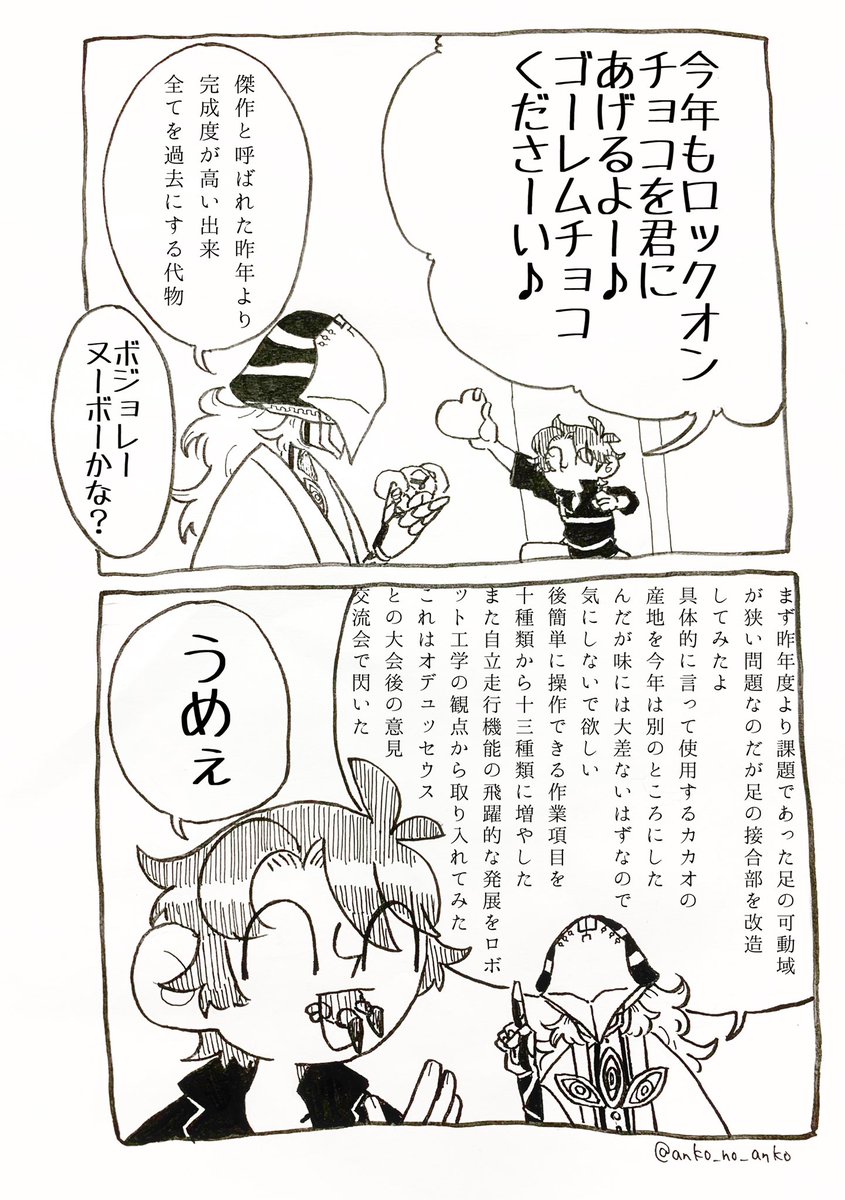 今年もロックオン
チョコを君に
あげるよー♪
ゴーレムチョコ
くださーい♪
傑作と呼ばれた昨年より
完成度が高い出来
全てを過去にする代物
ボジョレー
ヌーボーかな?
まず昨年度より課題であった足の可動域
が狭い問題なのだが足の接合部を改造
してみたよ
具体的に言って使用するカカオの
産地を今年は別のところにした
んだが味には大差ないはずなので
気にしないで欲しい
後簡単に操作できる作業項目を
十種類から十三種類に増やした
また自立走行機能の飛躍的な発展をロボ
ット工学の観点から取り入れてみた
これはオデュッセウス
との大会後の意見
交流会で閃いた
うめぇ
@anko_no_anko